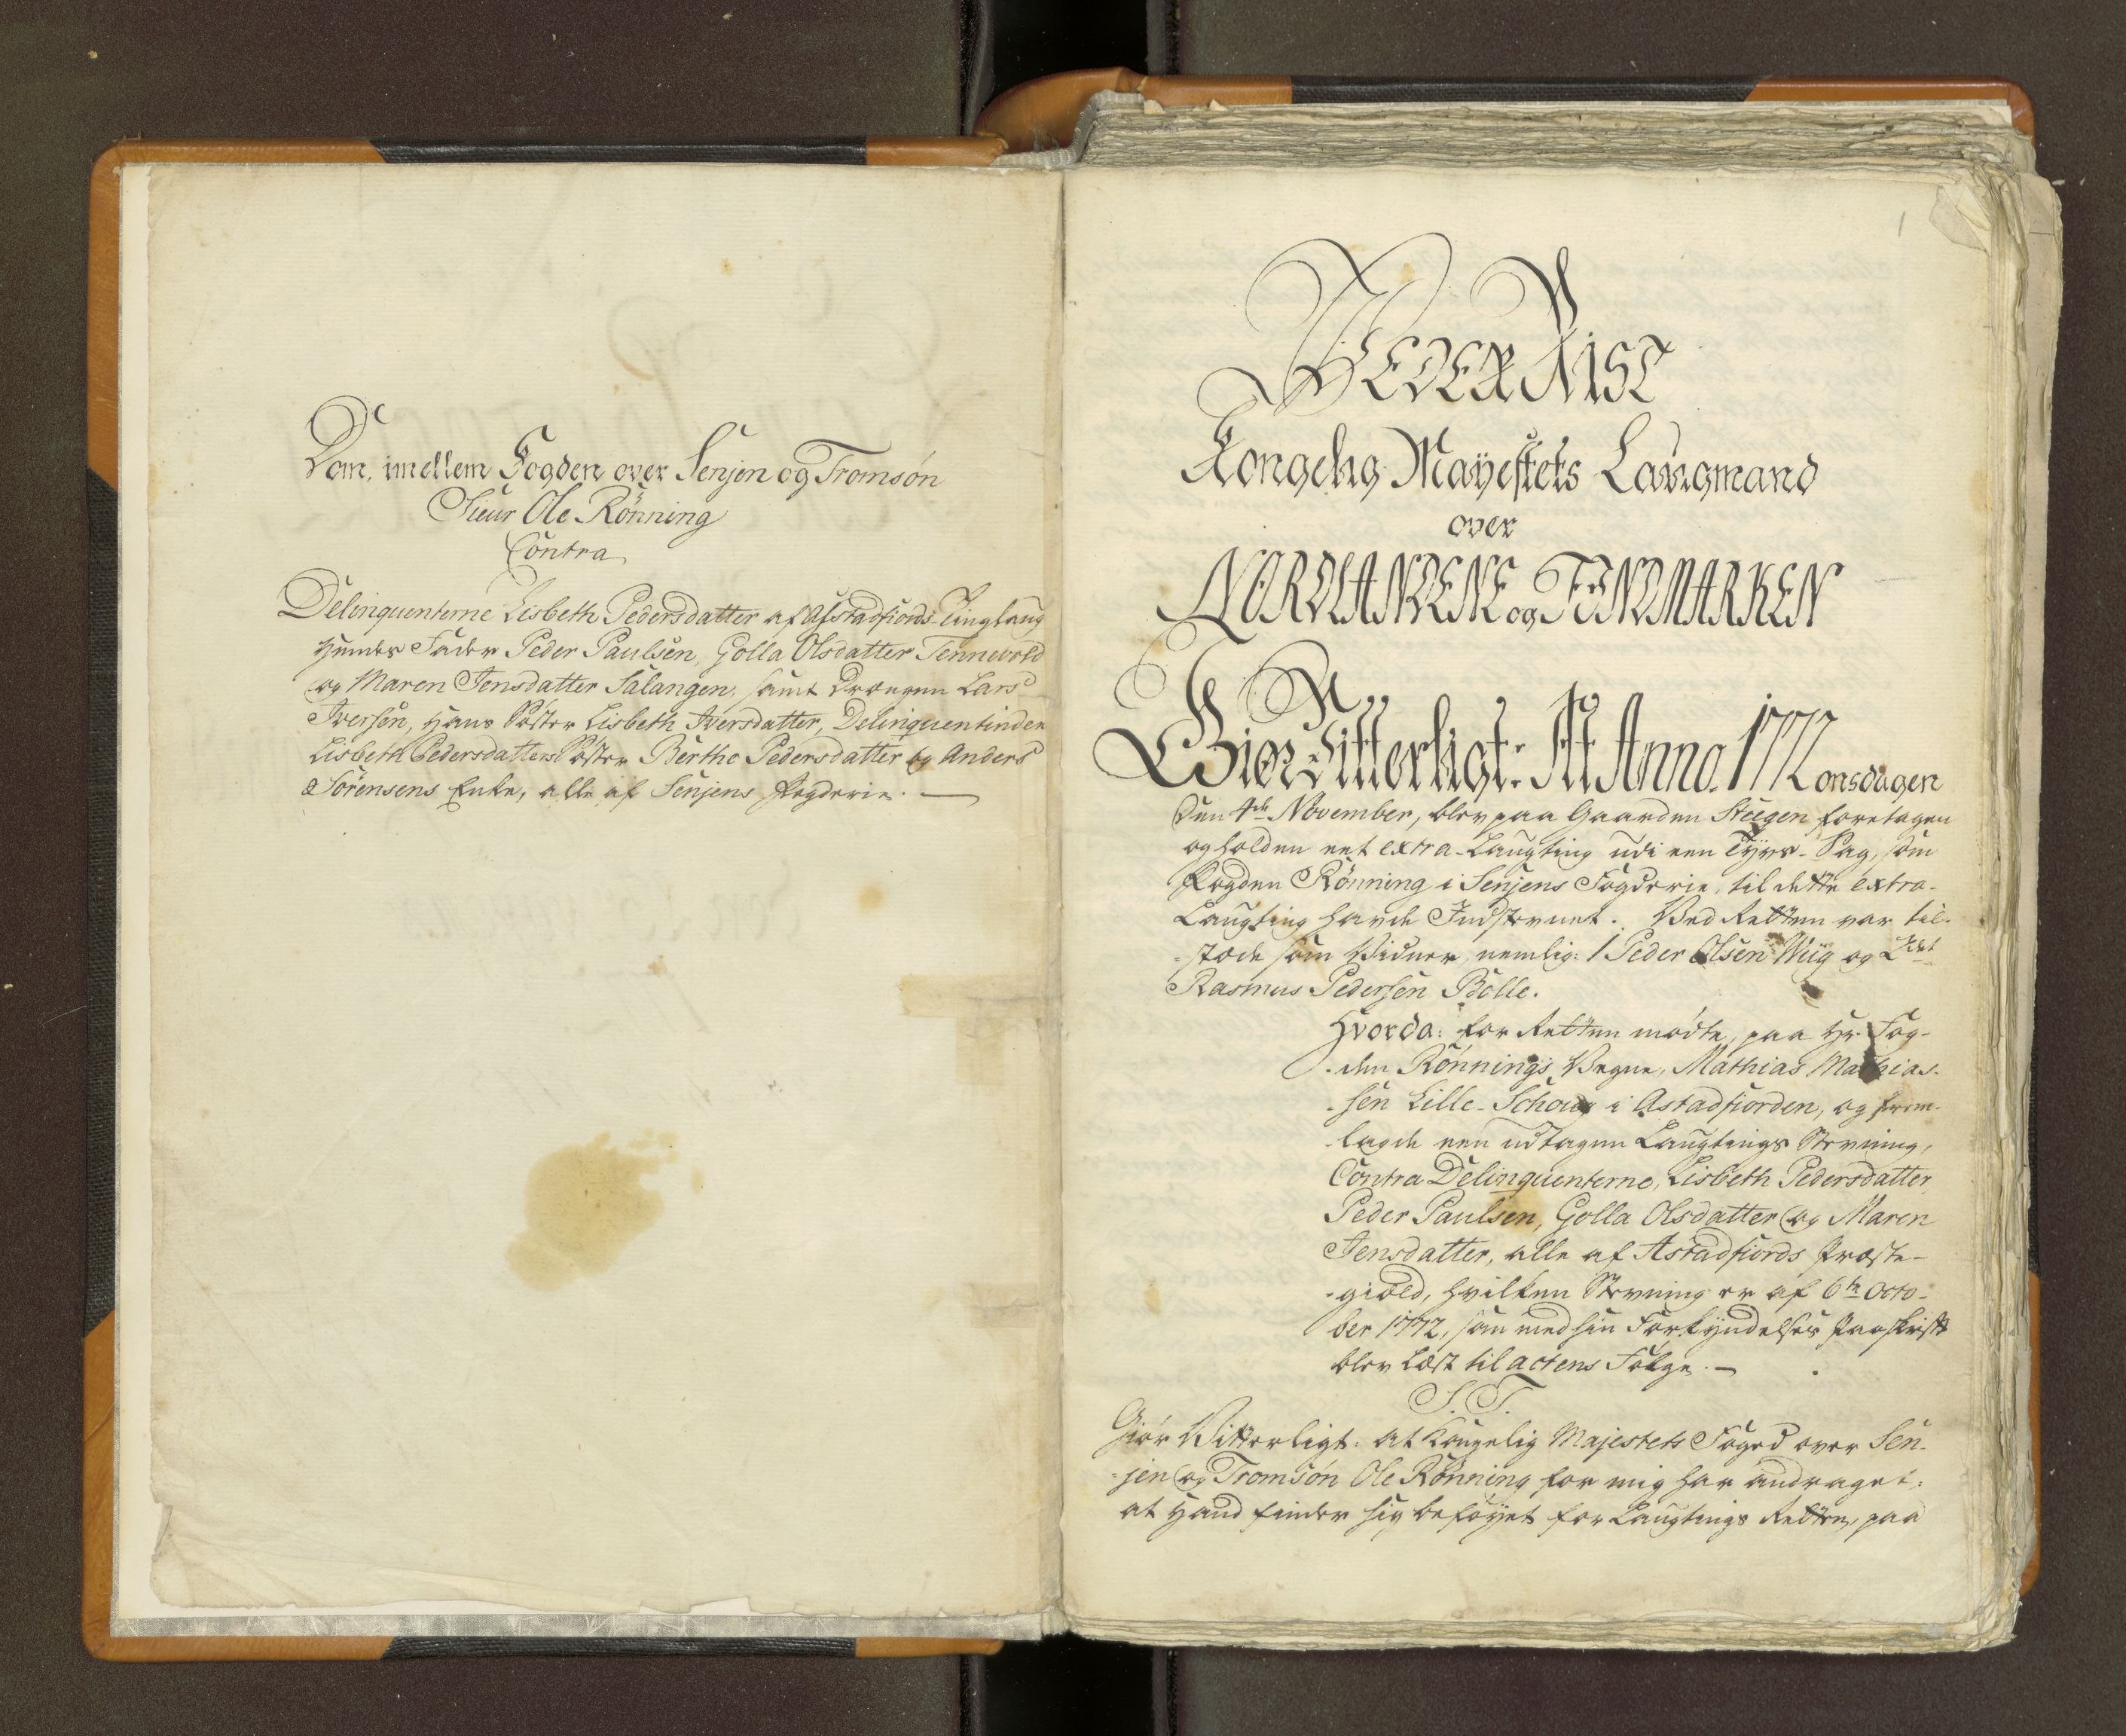 Dom, imellem Fogden over Senjen og Tromsøn
Sieur Ole Rönning
Contra
Delinquenterne Lisbeth Pedersdatter af Astadfiords Tinglaug
hendes Fader Peder Paulsen, Golla Olsdatter Tennevold
og Maren Jensdatter Salangen, samt Drængen Lars
Iversen, hans Søster Lisbeth Iversdatter, Delinquentinden
Lisbeth Pedersdatters Søster Berthe Pedersdatter og Anders
Sørensens Enke, alle af Senjens Fogderie.
1
PEDER NIST
Kongelig Mayestets Laugmand
over
NORDLANDENE og FINDMARKEN
Giør Vitterligt: At Anno. 1772 onsdagen
den 4de November, blev paa Gaarden Steegen foretagen
og holden eet extra-Laugting udi een Tyvs-Sag, som
Fogden Rönning i Senjens Fogderie, til dette extra-
Laugting havde Indstevnet. Ved Retten var til-
-stæde som Vidner, nemlig: 1 Peder Olsen Wiig og 2det
Rasmus Pedersen Bolle.
Hvorda: for Retten mødte, paa Hr. Fog-
-den Rönnings Vegne, Mathias Mathias-
-sen Lille-Schoug i Astadfiorden, og frem-
-lagde een udtagen Laugtings Stevning,
Contra Delinquenterne, Lisbeth Pedersdatter,
Peder Paulsen, Golla Olsdatter og Maren
Jensdatter, alle af Astadfiords Præste-
-giæld, hvilken Stevning er af 6te Octo-
ber 1772, som med sin Forkyndelses Paaskrift
blev læst til actens Følge.
S. T.
Giør Vitterligt: at Kongelig Majestets Foged over Sen-
-jen og Tromsøn Ole Rönning for mig har andraget:
at Hand finder sig beføyet for Laugtings Retten, paa